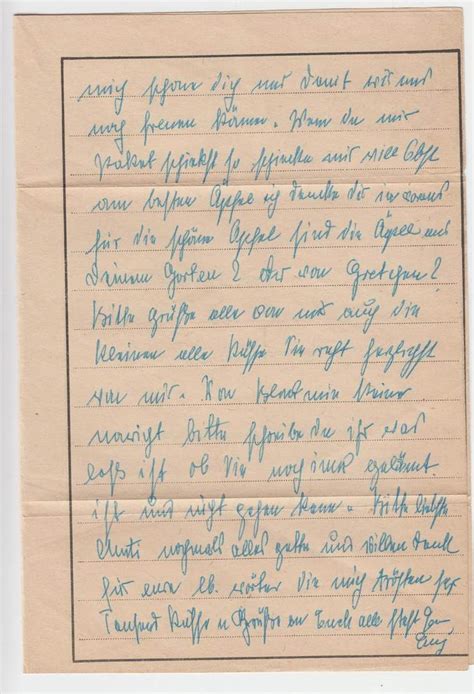 mich schone dich nur damit wir uns
noch freuen können. Wenn du mir
Paket schickst so schicke mir viel Obst
am besten Äpfel ich danke dir im voraus
für die schöne Äpfel sind die Äpfel aus
Deinem Garten? Oder von Gretchen?
Bitte grüße alle von mir auch die
Kleinen alle Küsse Sie recht herzlichst
von mir. Von keine
bitte schreibe du ihr was
los ist ob Sie noch gelähmt
ist und nicht gehen kann. Bitte liebste
Mutti nochmals alles gute und vielen Dank
für eure lb. wörter die mich trösten
Tausend Küsse u Grüße an Euch alle